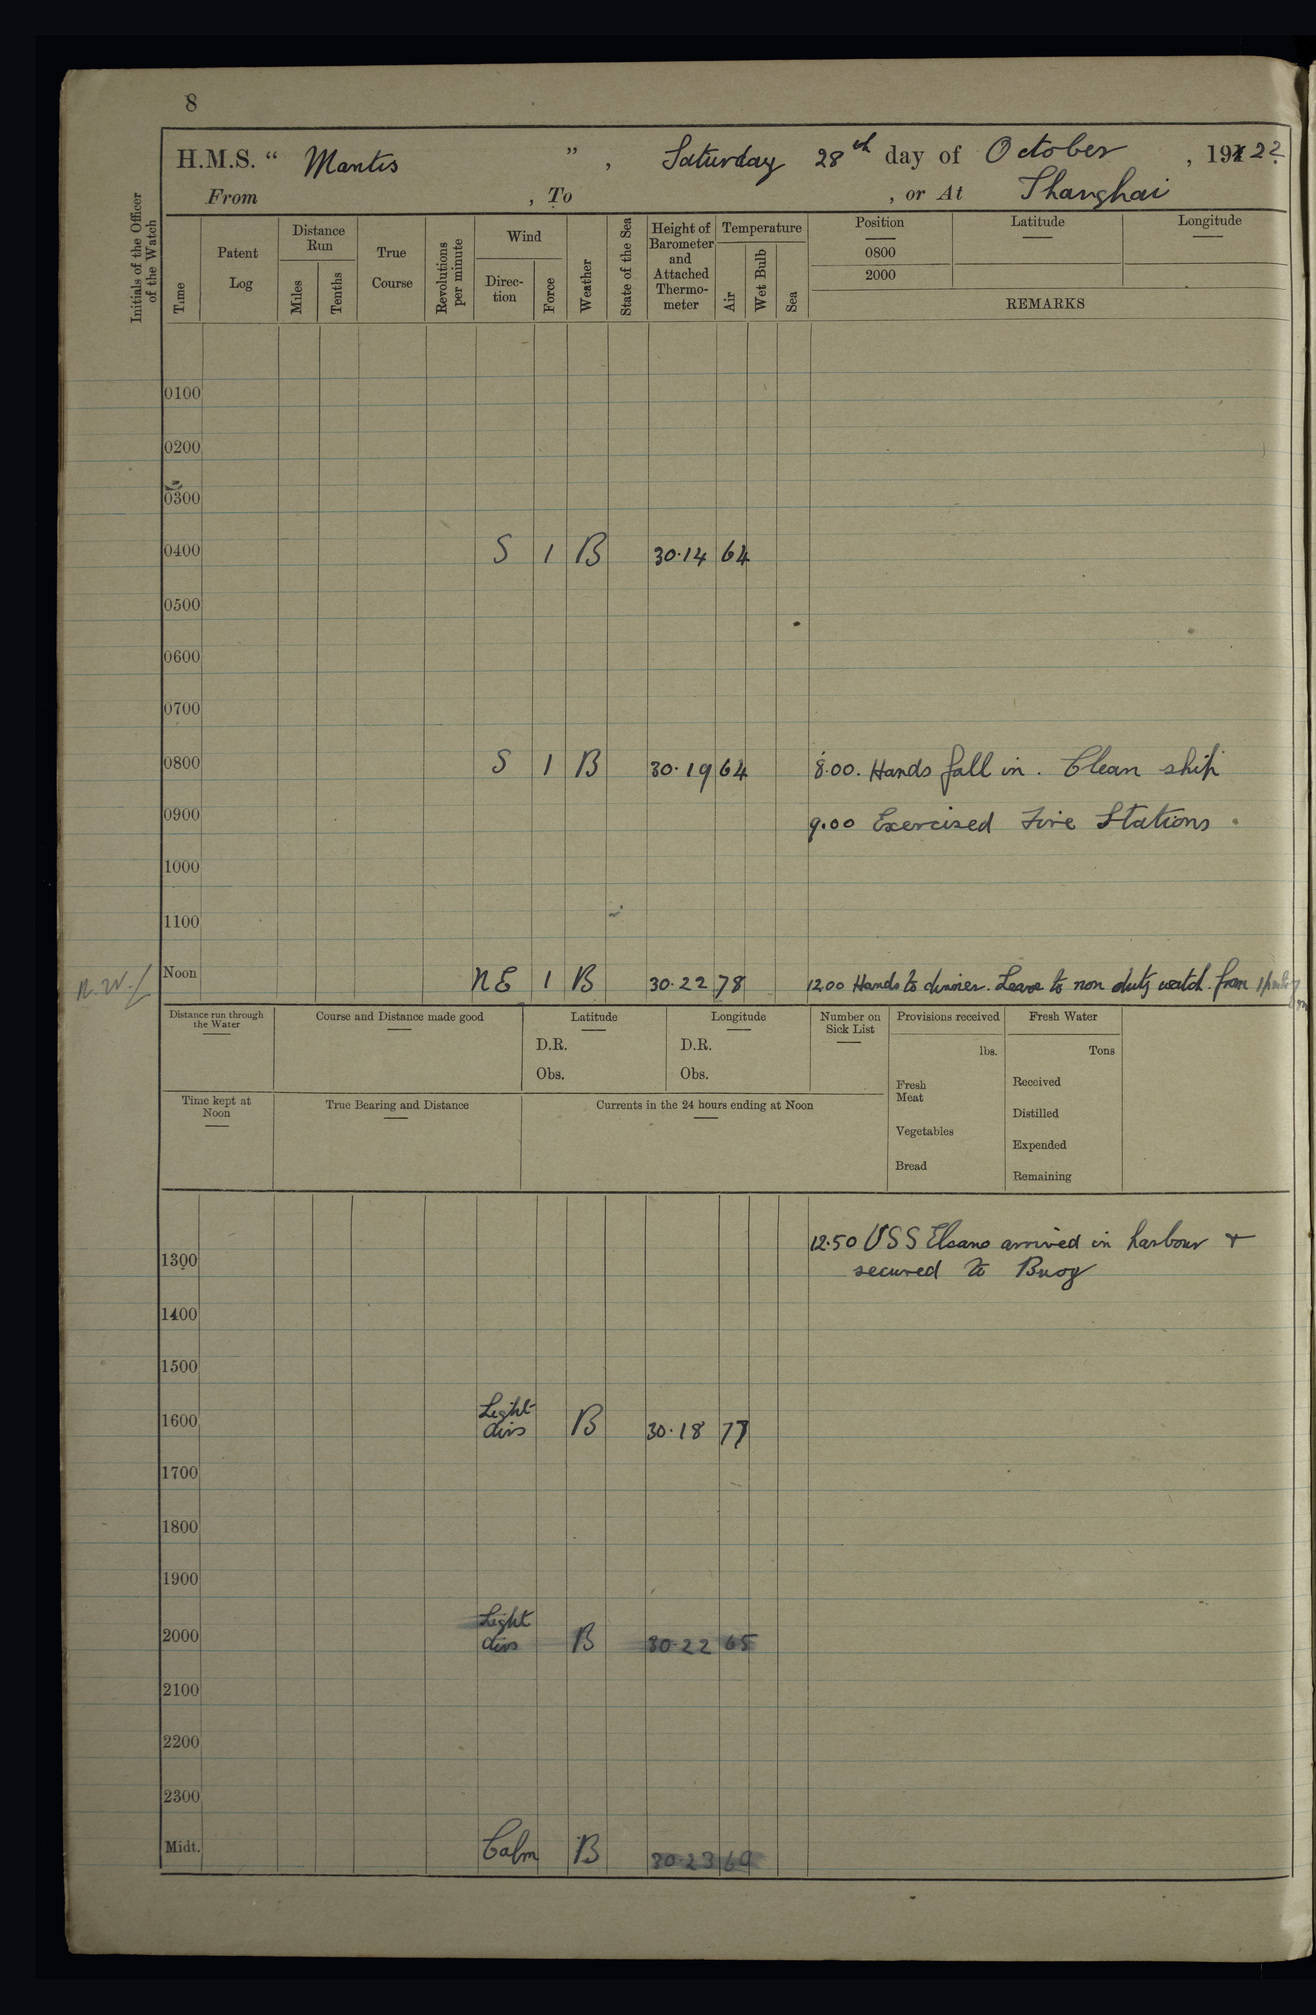 8
H.M.S. “ Mantis ” , Saturday 28th day of October , 1922
From , To , or At Shanghai
Initials of the Officer of the Watch
Time
Patent Log
Distance Run
Miles
Tenths
True Course
Revolutions per minute
Wind
Direc- tion
Force
Weather
State of the Sea
Height of Barometer and Attached Thermo- meter
Temperature
Air
Wet Bulb
Sea
Position Latitude Longitude
0800
2000
REMARKS
0100
0200
0300
0400 S 1 B 30.14 64
0500
0600
0700
0800 S 1 B 30.19 64 8.00. Hands fall in. Clean ship
0900 9.00 Exercised Fire Stations.
1000
1100
Noon NE 1 B 30.22 78 1200 Hands to dinner. Leave to non duty watch. from
Distance run through the Water
Course and Distance made good
Latitude
D.R.
Obs.
Longitude
D.R.
Obs.
Number on Sick List
Provisions received
lbs.
Fresh Meat
Vegetables
Bread
Fresh Water
Tons
Received
Distilled
Expended
Remaining
Time kept at Noon
True Bearing and Distance
Currents in the 24 hours ending at Noon
12.50 USS Elcano arrived in harbour +
1300 secured to Buoy
1400
1500
1600 Light airs B 30.18 77
1700
1800
1900
2000 Light airs B 30.22 65
2100
2200
2300
Midt. Calm B 30.23